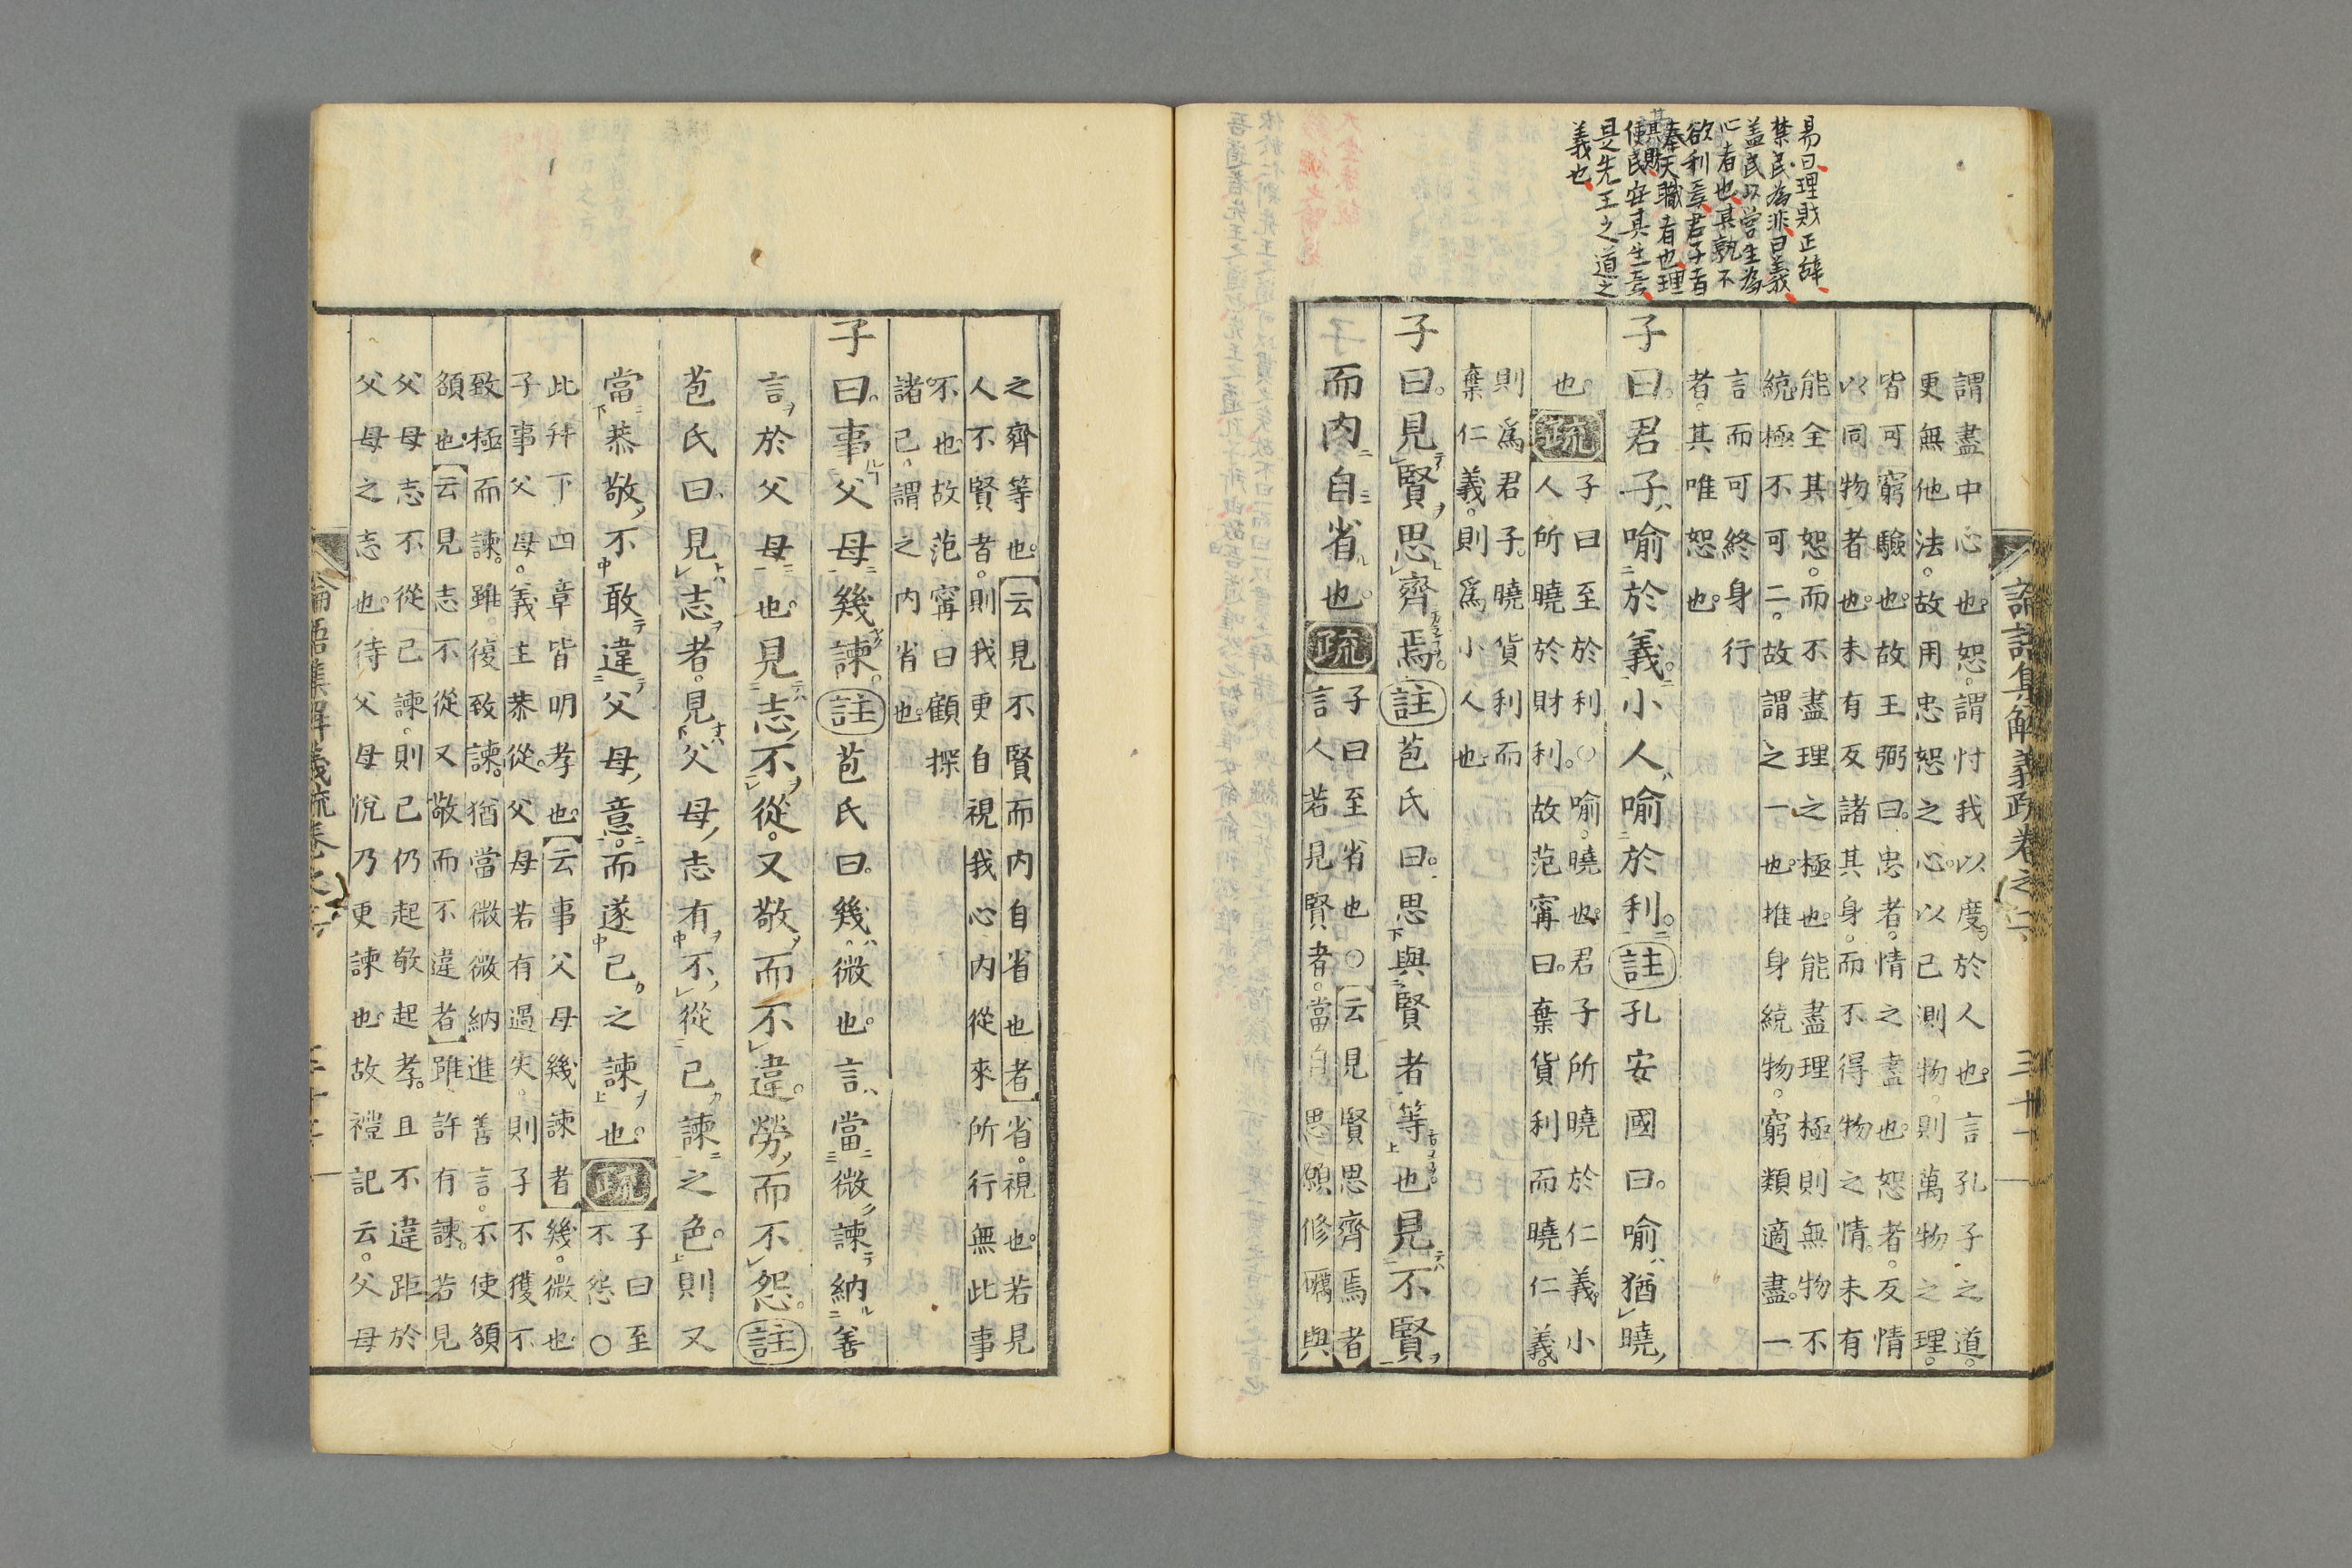 易曰理財正辭
禁民為非曰義
盖民以営生為
心者也其孰不
欲利焉君子者
奉天職者也理
其財
使民安其生焉
是先王之道之
義也
論語集解義疏卷之二
三十一
謂盡中心也。恕。謂忖我以度於人也。言孔子之道。
更無他法。故用忠恕之心。以己測物。則萬物之理。
皆可窮驗也。故王弼曰。忠者。情之盡也。恕者。反情
以同物者也。未有反諸其身。而不得物之情。未有
能全其恕。而不盡理之極也。能盡理極則無物不
統。極不可二。故謂之一也。推身統物。窮類適盡。一
言而可終身行
者。其唯恕也。
子曰。君子喻於義。小人喻於利。註孔安國曰。喻猶曉
也。疏
子曰至於利〇喻。曉也。君子所曉於仁義。小
人所曉於財利。故范甯曰。棄貨利而曉仁義。
則爲君子。曉貨利而
棄仁義。則爲小人也
子曰。見賢思齊焉。註苞氏曰。思與賢者等也見不賢
而内自省也。疏
子曰至省也〇云見賢思齊焉者
言人若見賢者。當自思願修礪與
之齊等也。云見不賢而内自省也者省。視也。若見
人不賢者。則我更自視我心内從來所行無此事
不也。故范甯曰顧探
諸己。謂之内省也。
子曰。事父母幾諫。註苞氏曰。幾。微也。言當微諫納善
言於父母也。見志不從。又敬而不違。勞而不怨。註
苞氏曰見志者。見父母志有不從己諫之色。則又
當恭敬不敢違父母意。而遂己之諫也。疏
子曰至
不怨〇
此幷下四章皆明孝也。云事父母幾諫者幾。微也
子事父母。義主恭從。父母若有過失。則子不獲不
致極而諫。雖復致諫。猶當微微納進善言。不使額
額也。云見志不從又敬而不違者雖許有諫。若見
父母志不從己諫。則己仍起敬起孝。且不違距於
父母之志也。待父母悅乃更諫也。故禮記云。父母
論語集解義疏卷之二